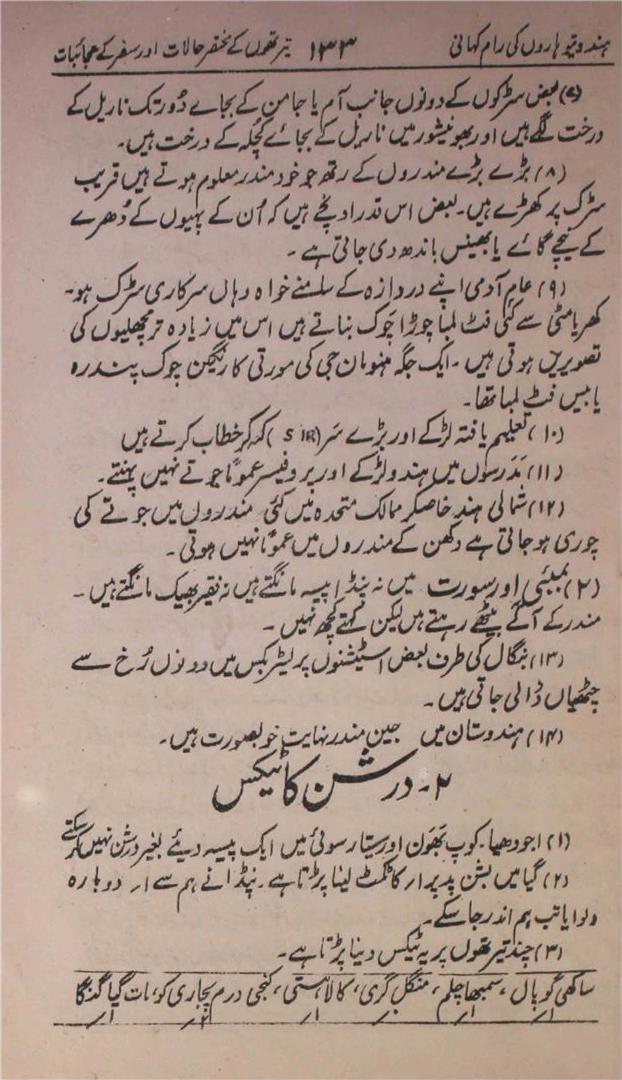 ہندو تیوہاروں کی رام کہانی ۱۳۳ تیرتھوں کے مختصر حالات اور سفر کے عجائبات
(۷) بعض سڑکوں کے دونوں جانب آم یا جامن کے بجاے دُور تک ناریل کے
درخت لگے ہیں اور بھونیشور میں ناریل کے بجاۓ کُچلہ کے درخت ہیں۔
(۸) بڑے بڑے مندروں کے رتھ جو خود مندر معلوم ہوتے ہیں قریب
سڑک پر کھڑے ہیں۔ بعض اس قدر اونچے ہیں کہ اُن کے پہیوں کے دُھرے
کے نیچے گائے یا بھینس باندھ دی جاتی ہے۔
(۹) عام آدمی اپنے دروازہ کے سامنے خواہ وہاں سرکاری سڑک ہو۔
کھریا مٹی سے کئی فٹ لمبا چوڑا چَوک بناتے ہیں اس میں زیادہ تر مچھلیوں کی
تصویریں ہوتی ہیں۔ ایک جگہ ہنومان جی کی مورتی کا رنگین چوک پندرہ
یا بیس فٹ لمبا تھا۔
(۱۰) تعلیم یافتہ لڑکے اور بڑے سَر (SIR) کہہ کر خطاب کرتے ہیں
(۱۱) مَدرسوں میں ہندو لڑکے اور پروفیسر عموًما جوتے نہیں پہنتے۔
(۱۲) شمالی ہند خاصکر ممالک متحدہ میں کئی مندروں میں جوتے کی
چوری ہو جاتی ہے دکھن کے مندروں میں عمومًا نہیں ہوتی۔
(۲) بمبئی اور سورت میں نہ پنڈا پیسہ مانگتے ہیں نہ فقیر بھیک مانگتے ہیں۔
مندر کے آگے بیٹھے رہتے ہیں لیکن کہتے کچھ نہیں۔
(۱۳) بنگال کی طرف بعض اسٹیشنوں پر لیٹر بکس میں دونوں رُخ سے
چٹھیاں ڈالی جاتی ہیں۔
(۱۴) ہندوستان میں جین مندر نہایت خوبصورت ہیں۔
۲۔ درشن کا ٹیکس
(۱) اجودھیا۔ کوپ بَھوَن اور سیتا رسوئی میں ایک پیسہ دیئے بغیر درشن نہیں کر سکتے
(۲) گیا میں بشن پد پر ۱؍ کا ٹکٹ لینا پڑتا ہے۔ پنڈا نے ہم سے ۱؍ دوبارہ
دلوایا تب ہم اندر جا سکے۔
(۳) چند تیرتھوں پر یہ ٹیکس دینا پڑتا ہے۔
ساکھی گوپال، سمبھاچلم، منگل گری، کالاہستی، کنجی ورم پجاری کو، مات گیا گنگا
۱؍ ۱؍ ۱؍ ۱؍ ۲؍ ۱؍